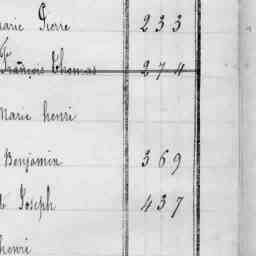 Marie Pierre 233
François Thomas 274
Marie henri
Benjamin 369
Joseph 437
henri